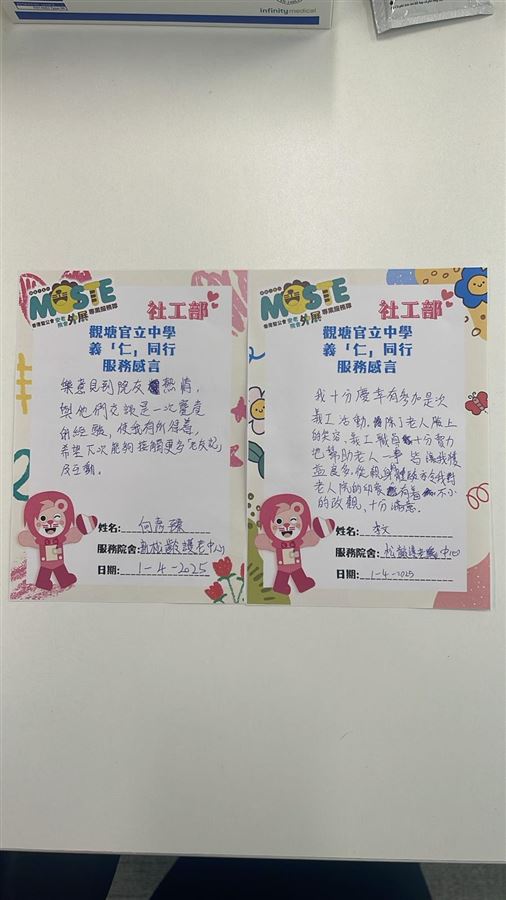 infinity medical
MOSTE
香港聖公會 安老院舍 外展專業服務隊
社工部
觀塘官立中學
義「仁」同行
服務感言
樂意見到院友熱情，
與他們交談是一次寶貴
的經驗，使我有所得着，
希望下次能夠接觸更多「老友記」
及互動。
姓名:
服務院舍: 松齡護老中心
日期: 1-4-2025
MOSTE
香港聖公會 安老院舍 外展專業服務隊
社工部
觀塘官立中學
義「仁」同行
服務感言
我十分慶幸有參加是次
義工活動，除了老人臉上
的笑容、義工職員十分賣力
地幫助老人一事 皆讓我獲
益良多，從親身體驗亦令我對
老人院的印象有着不小
的改觀，十分滿意。
姓名:
服務院舍: 松齡護老中心
日期: 1-4-2025